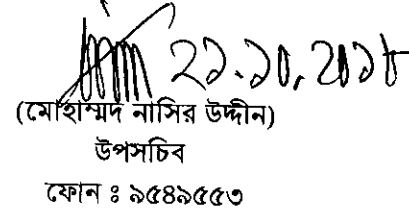 ২১.১০.২০১৮
(মোহাম্মদ নাসির উদ্দীন)
উপসচিব
ফোন ঃ ৯৫৪৯৫৫৩